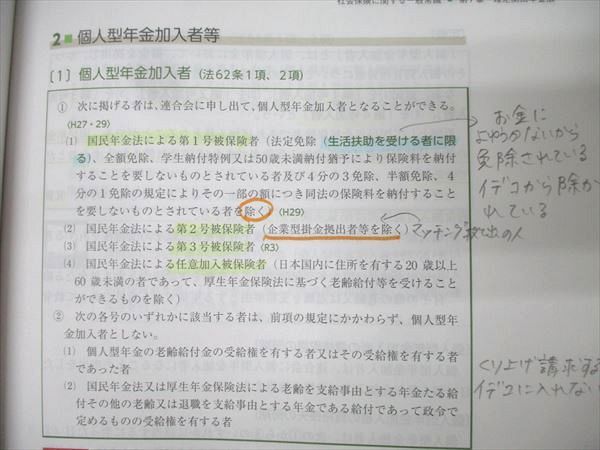 社会保険に関する一般常識
2 個人型年金加入者等
〔1〕個人型年金加入者(法62条1項、2項)
① 次に掲げる者は、連合会に申し出て、個人型年金加入者となることができる。
〈H27・29〉
(1) 国民年金法による第1号被保険者(法定免除(生活扶助を受ける者に限
る)、全額免除、学生納付特例又は50歳未満納付猶予により保険料を納付
することを要しないものとされている者及び4分の3免除、半額免除、4
分の1免除の規定によりその一部の額につき同法の保険料を納付すること
を要しないものとされている者を除く)〈H29〉
(2) 国民年金法による第2号被保険者(企業型掛金拠出者等を除く)
(3) 国民年金法による第3号被保険者〈R3〉
(4) 国民年金法による任意加入被保険者(日本国内に住所を有する20歳以上
60歳未満の者であって、厚生年金保険法に基づく老齢給付等を受けること
ができるものを除く)
② 次の各号のいずれかに該当する者は、前項の規定にかかわらず、個人型年
金加入者としない。
(1) 個人型年金の老齢給付金の受給権を有する者又はその受給権を有する者
であった者
(2) 国民年金法又は厚生年金保険法による老齢を支給事由とする年金たる給
付その他の老齢又は退職を支給事由とする年金である給付であって政令で
定めるものの受給権を有する者
お金に
よゆうがないから
免除されている
イデコから除か
れている
マッチング拠出の人
くり上げ請求する
イデコに入れない